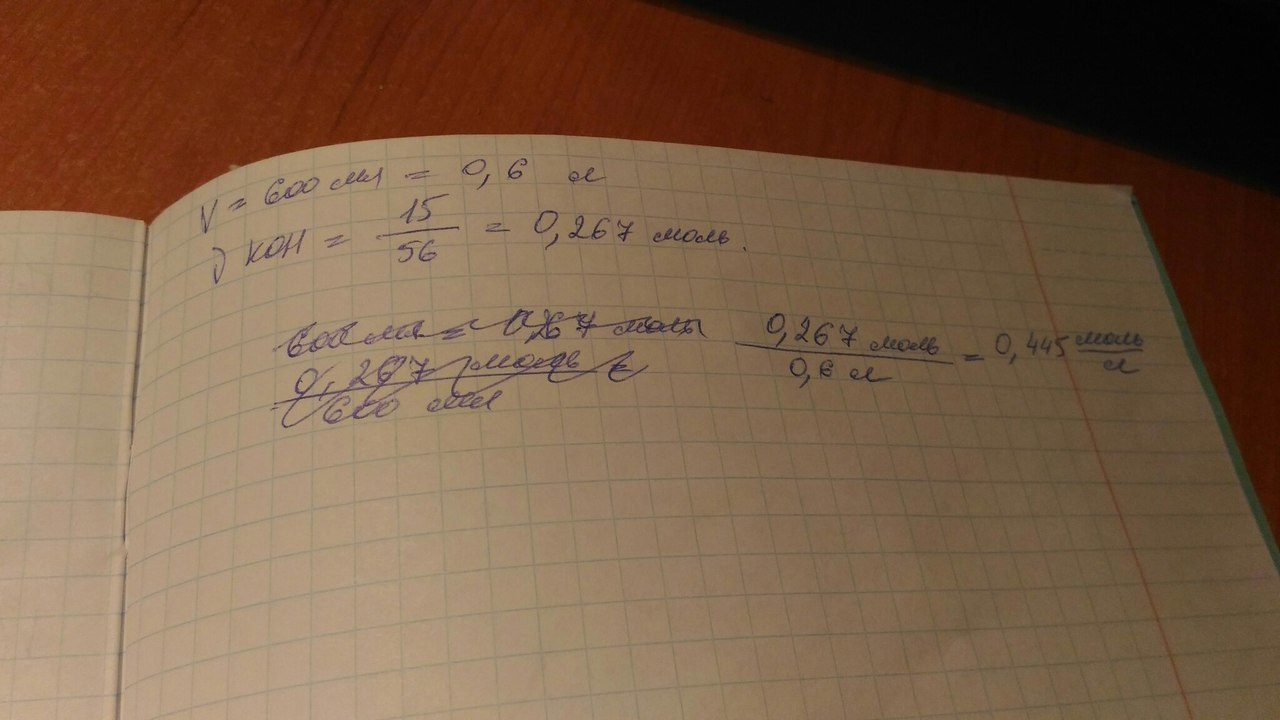 V = 600 мл = 0,6 л
ν KOH = 15/56 = 0,267 моль.
600 мл = 0,267 молы
0,267 моль
600 мл
0,267 моль/0,6 л = 0,445 моль/л